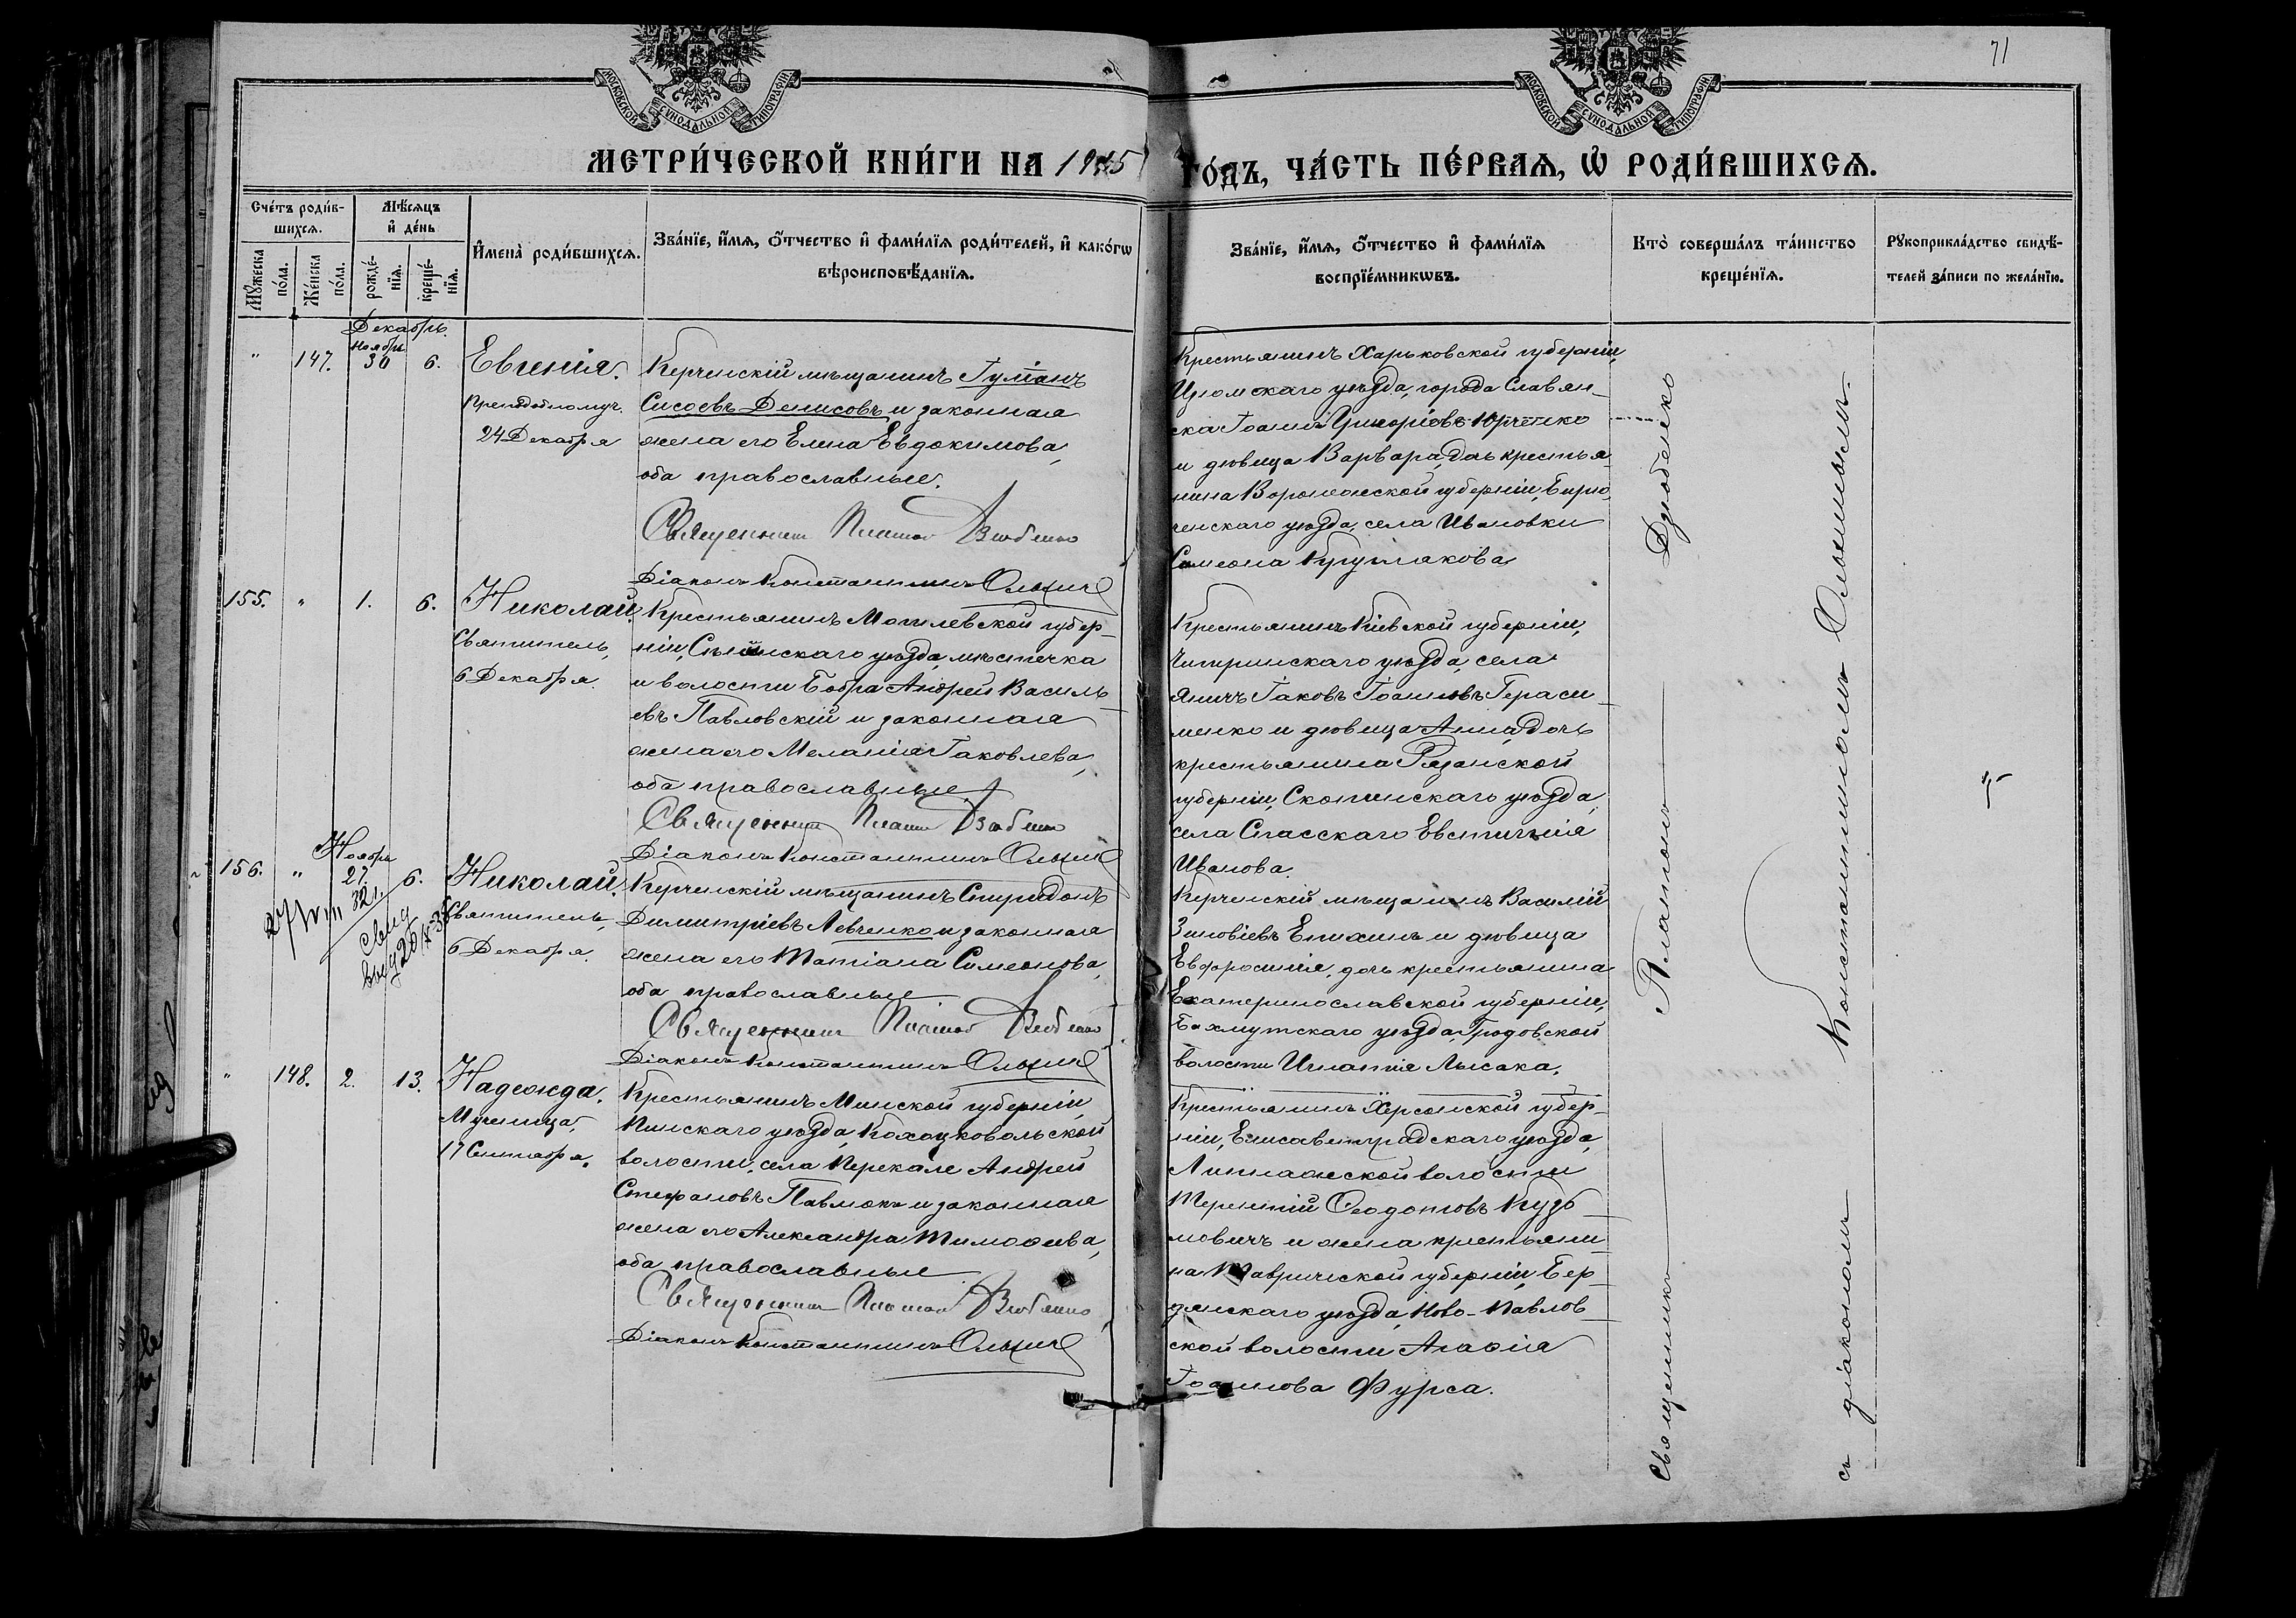 71
МОСКОВСКОЙ СѴНОДАЛЬНОЙ ТИПОГРАФІИ
МОСКОВСКОЙ СѴНОДАЛЬНОЙ ТИПОГРАФІИ
МЕТРИ́ЧЕСКОЙ КНИ́ГИ НА 1915 ГО́ДЪ, ЧА́СТЬ ПЕ́РВАѦ, Ѡ҆ РОДИ́ВШИХСѦ.
Счётъ роди́в-
шихсѧ.
Мꙋ́жеска по́ла.
Же́нска по́ла.
Мѣ́сѧцъ
и҆ де́нь
рожде́-
нїѧ.
креще́-
нїѧ.
И҆мена̀ роди́вшихсѧ.
Зва́нїе, и҆́мѧ, ѻ҆́тчество и҆ фами́лїѧ роди́телей, и҆ како́гѡ
вѣроисповѣ́данїѧ.
Зва́нїе, и҆́мѧ, ѻ҆́тчество и҆ фами́лїѧ
воспрїе́мникѡвъ.
Кто̀ соверша́лъ та́инство
креще́нїѧ.
Рꙋкоприкла́дство свидѣ́-
телей за́писи по жела́нїю.
Декабрь.
Ноября
" 147. 30 6. Евгенія.
Преподобномуч.
24 Декабря
Керченскій мѣщанинъ
Сисоевъ Денисовъ и законная
жена его Елена Евдокимова,
оба православные.
Священникъ Платон Дзюбенко
Діаконъ Константинъ
Крестьянинъ Харьковской губерніи,
Изюмскаго уѣзда, города Славян-
ска Іоаннъ Григоріевъ Юрченко
и дѣвица Варвара, дочь крестья-
нина Воронежской губерніи, Бирю-
ченскаго уѣзда, села Ивановки
Симеона Круглякова
155. " 1. 6. Николай.
Святитель,
6 Декабря.
Крестьянинъ Могилевской губер-
ніи, Сѣннинскаго уѣзда, мѣстечка
и волости Бобра Андрей Василь-
евъ Павловскій и законная
жена его Меланія Іаковлева,
оба православные
Священникъ Платон Дзюбенко
Діаконъ Константинъ
Крестьянинъ Кіевской губерніи,
Чигиринскаго уѣзда, села
Яничъ Іаковъ Іоанновъ Гераси-
менко и дѣвица Анна, дочь
крестьянина Рязанской
губерніи, Скопинскаго уѣзда,
села Спасскаго Евстигнія
Иванова.
156. " Ноября 27. 6. Николай.
Святитель,
6 Декабря.
Керченскій мѣщанинъ Спиридонъ
Димитріевъ Левченко и законная
жена его Татіана Симеонова,
оба православные
Священникъ Платон Дзюбенко
Діаконъ Константинъ
Керченскій мѣщанинъ Василій
Зиновіевъ Епихинъ и дѣвица
Евфросинія, дочь крестьянина
Екатеринославской губерніи,
Бахмутскаго уѣзда, Гродовской
волости Игнатія Лысака.
" 148. 2. 13. Надежда.
Мученица,
17 Сентября.
Крестьянинъ Минской губерніи,
Пинскаго уѣзда,
волости, села Перекале Андрей
Стефановъ Павлюкъ и законная
жена его Александра Тимоѳеева,
оба православные
Священникъ Платон Дзюбенко
Діаконъ Константинъ
Крестьянинъ Херсонской губер-
ніи, Елисаветградскаго уѣзда,
волости
Терентій Ѳеодотовъ Кузь-
мовичъ и жена крестьяни-
на Таврической губерніи, Бер-
дянскаго уѣзда, Ново-Павлов-
ской волости Агаѳія
Іоаннова Фурса.
Священникъ Платонъ Дзюбенко
съ діакономъ Константиномъ